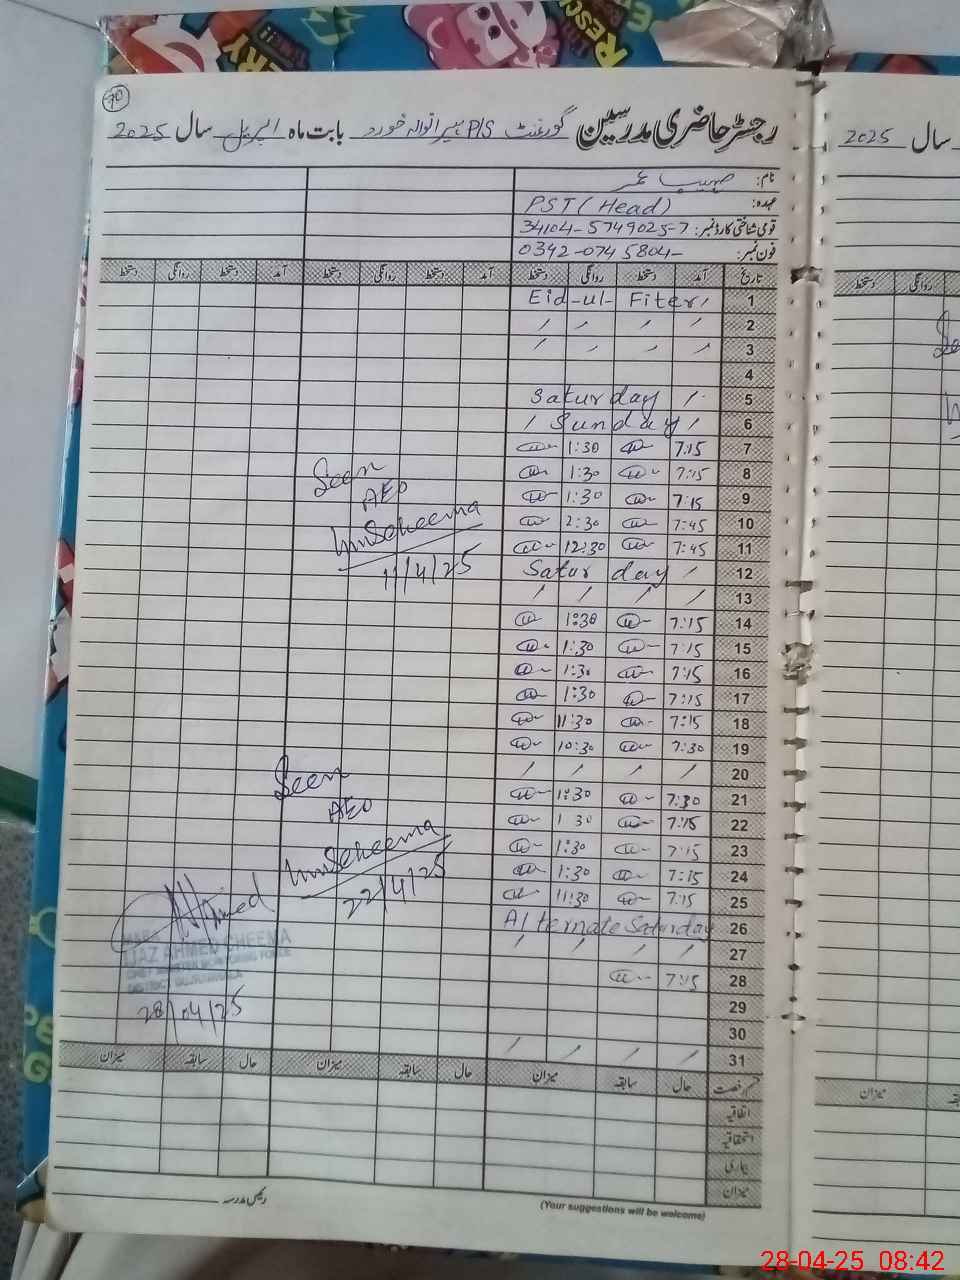 70
رجسٹر حاضری مدرسین گورنمنٹ P/S ہیرانوالہ خورد بابت ماہ اپریل سال 2025
سال 2025
نام: صہیب عمر
عہدہ: PST (Head)
قومی شناختی کارڈ نمبر: 34104-5749025-7
فون نمبر: 0342-0745804
تاریخ آمد دستخط روانگی دستخط آمد دستخط روانگی دستخط آمد دستخط روانگی دستخط
روانگی دستخط
1 Eid-ul-Fiter
2
3
4
5 Saturday
6 Sunday
7 7:15 1:30
8 7:15 1:30
9 7:15 1:30
10 7:45 2:30
11 7:45 12:30
12 Saturday
13
14 7:15 1:30
15 7:15 1:30
16 7:15 1:30
17 7:15 1:30
18 7:15 11:30
19 7:30 10:30
20
21 7:30 1:30
22 7:15 1 30
23 7:15 1:30
24 7:15 1:30
25 7:15 11:30
26 Alternate Saturday
27
28 7:15
29
30
31
Seen
AEO
11/4/25
Seen
AEO
22/4/25
IJAZ AHMED CHEEMA
28/04/25
رخصت حال سابقہ میزان حال سابقہ میزان حال سابقہ میزان
میزان
اتفاقیہ
استحقاقیہ
بیماری
میزان
رئیس مدرسہ
(Your suggestions will be welcome)
28-04-25 08:42